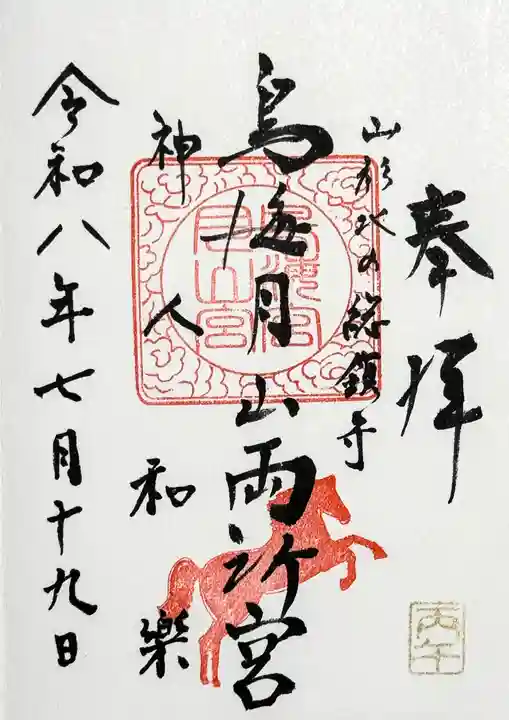 奉拝
山形北の総鎮守
鳥海月山両所宮
神人和楽
令和八年七月十九日
鳥海宮
月山宮
丙午